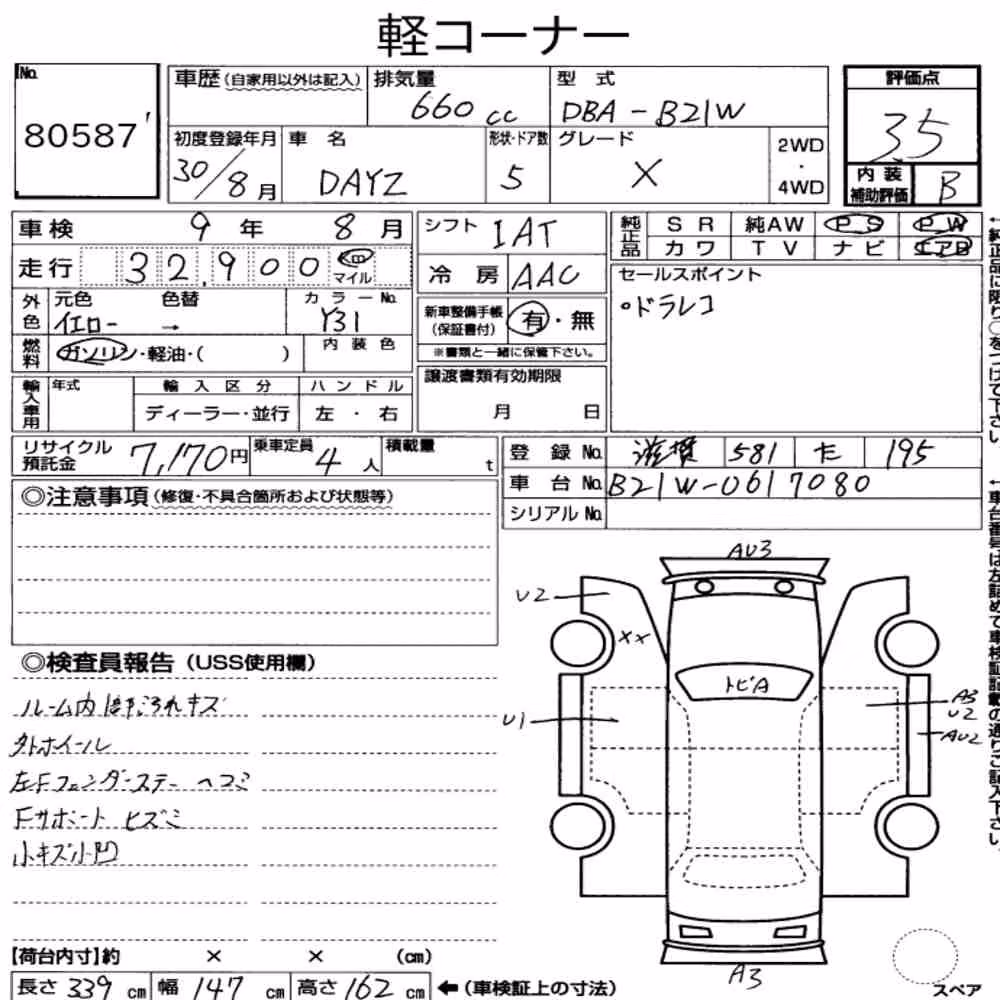 軽コーナー
No. 80587
車歴(自家用以外は記入) 排気量 660 cc 型式 DBA-B21W
評価点 3.5
初度登録年月 30/8月 車名 DAYZ 形状・ドア数 5 グレード X 2WD・4WD
内装補助評価 B
車検 9年 8月
シフト IAT
純正品 SR 純AW PS PW
カワ TV ナビ エアB
走行 32,900 km マイル
冷房 AAC
セールスポイント
○ドラレコ
外色 元色 色替 カラーNo.
イエロー → Y31
新車整備手帳(保証書付) 有・無
※書類と一緒に保管下さい。
燃料 ガソリン・軽油・( ) 内装色
輸入車用 年式 輸入区分 ハンドル
ディーラー・並行 左・右
譲渡書類有効期限
月 日
リサイクル預託金 7,170円 乗車定員 4人 積載量 t
登録No. 滋賀 581 195
車台No. B21W-0617080
シリアルNo.
◎注意事項(修復・不具合箇所および状態等)
◎検査員報告(USS使用欄)
ルーム内 汚れキズ
外ホイール
左Fフェンダーステー ヘコミ
Fサポート ヒズミ
小キズ小凹
AU3
U2
XX
トビA
U1
A3
U2
AU2
A3
スペア
【荷台内寸】約 × × (cm)
長さ 339 cm 幅 147 cm 高さ 162 cm ←(車検証上の寸法)
←純正品に限り○をつけて下さい
←車台番号は左詰めで車検証記載の通りご記入下さい。